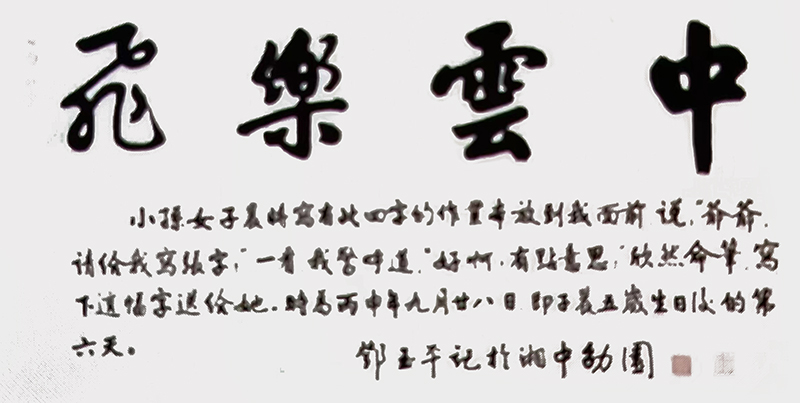 飛樂雲中
小孫女子晨將寫有此四字的作業本放到我面前說,"爺爺,
請給我寫張字,"一看我驚呼道,"好啊,有點意思,"欣然命筆,寫
下這幅字送給她。時爲丙申年九月廿八日即子晨五歲生日後的第
六天。
鄧玉平記於湘中幼園